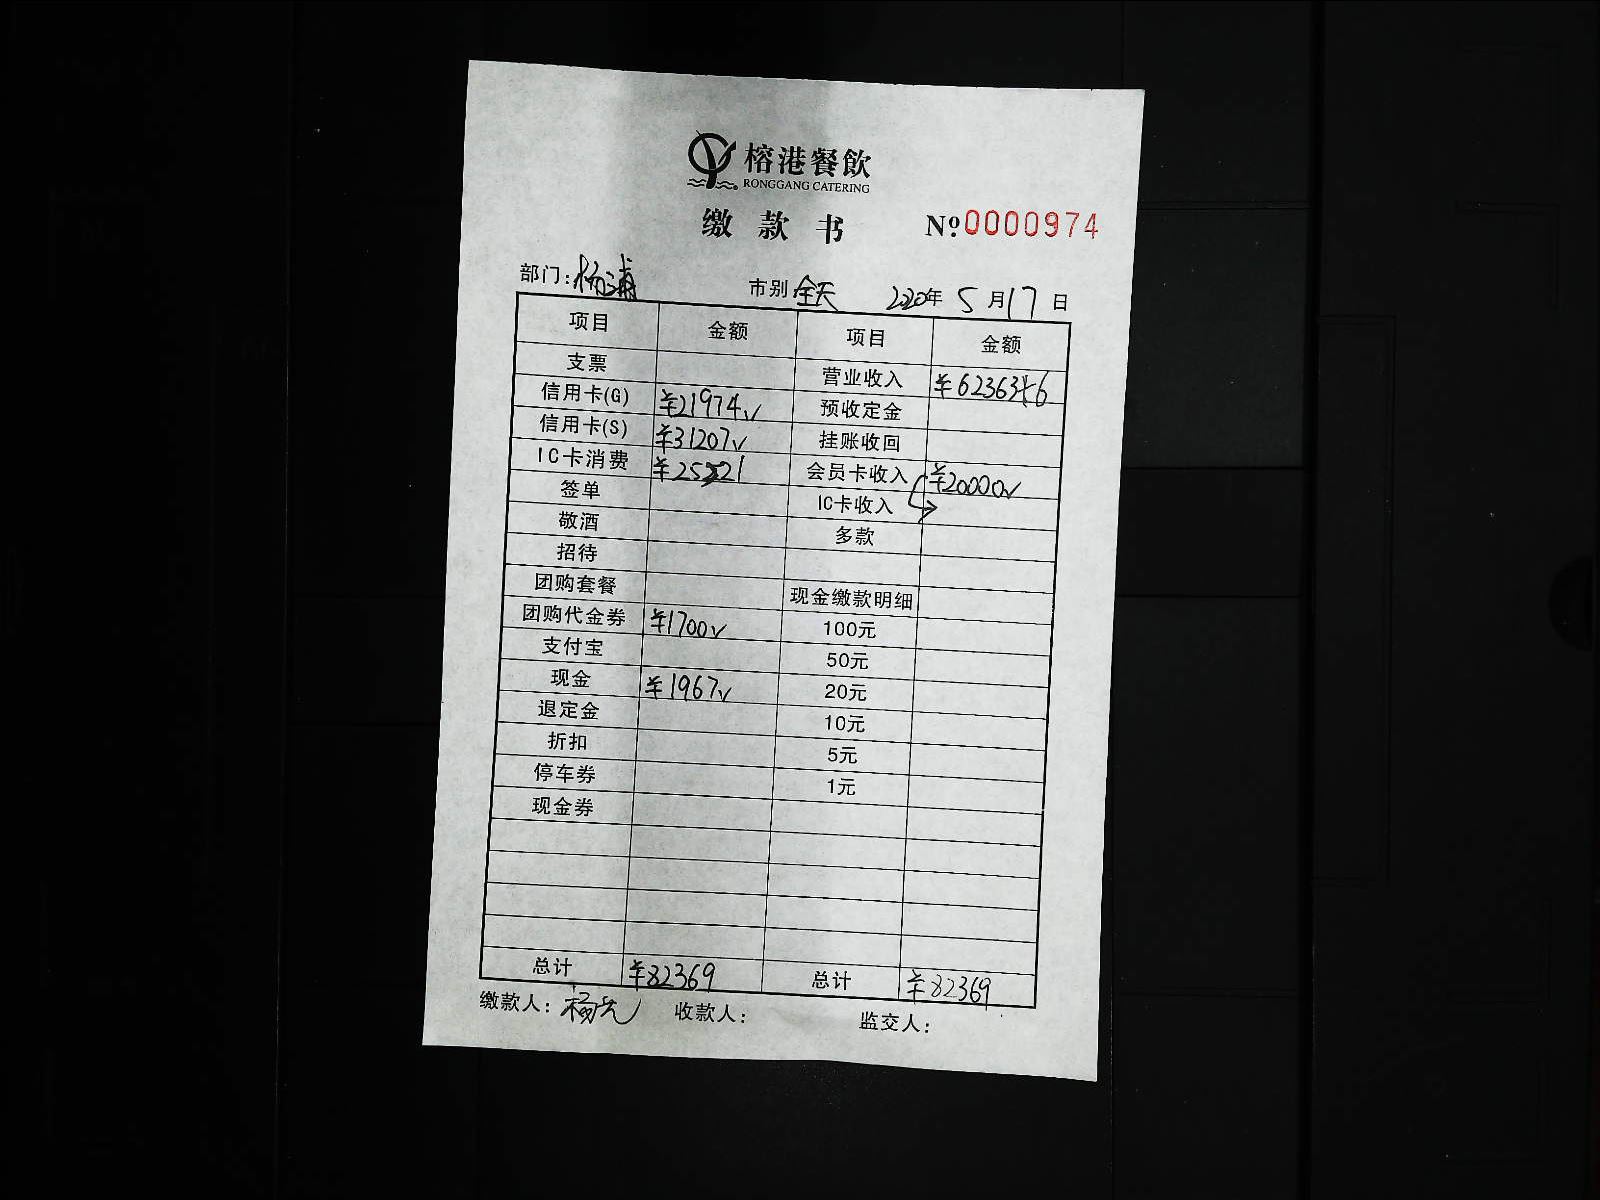 榕港餐飲
RONGGANG CATERING
缴款书 №:0000974
部门: 杨浦 市别 全天 2020年 5 月 17 日
项目 金额 项目 金额
支票 营业收入 ¥62363+6
信用卡(G) ¥21974√ 预收定金
信用卡(S) ¥31207√ 挂账收回
IC卡消费 ¥25521 会员卡收入 ¥20000√
签单 IC卡收入
敬酒 多款
招待
团购套餐 现金缴款明细
团购代金券 ¥1700√ 100元
支付宝 50元
现金 ¥1967√ 20元
退定金 10元
折扣 5元
停车券 1元
现金券
总计 ¥82369 总计 ¥82369
缴款人: 收款人: 监交人: